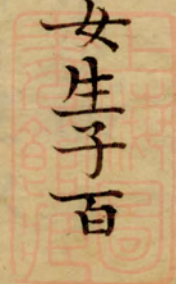 女生子百